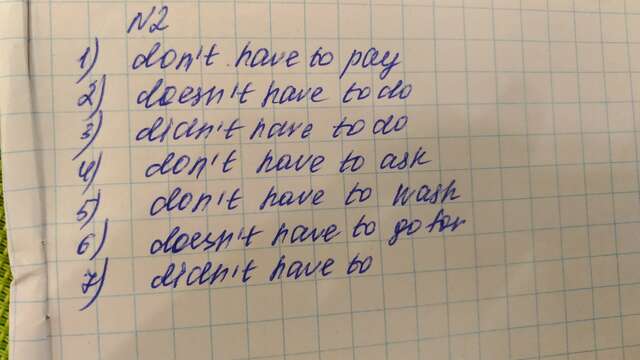 N2
1) don't have to pay
2) doesn't have to do
3) didn't have to do
4) don't have to ask
5) don't have to wash
6) doesn't have to go for
7) didn't have to